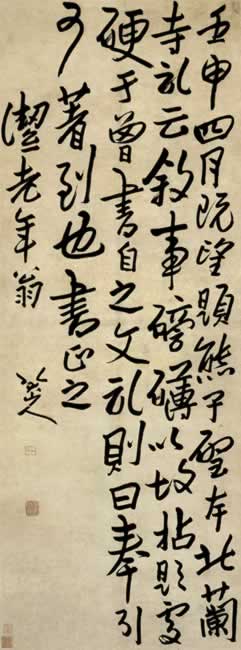 壬申四月既望題熊子聖本北蘭
寺記云敘事磅礴以故拈題處
硬于曾書自之文記則曰奉引
可著到也書正之
老年翁
八大山人